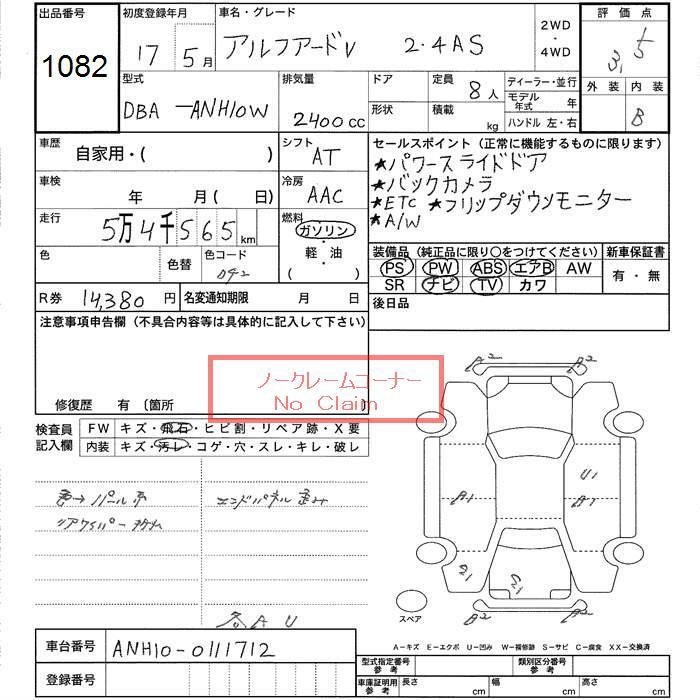 出品番号
1082
初度登録年月
17 5月
車名・グレード
アルファードV 2.4AS
2WD
・
4WD
評価点
3.5
外装 内装
B
型式
DBA -ANH10W
排気量
2400cc
ドア
定員
8人
ディーラー・並行
モデル年式 年
形状
積載
kg
ハンドル 左・右
車歴
自家用・( )
シフト
AT
セールスポイント(正常に機能するものに限ります)
★パワースライドドア
★バックカメラ
★ETC ★フリップダウンモニター
★A/W
車検
年 月( 日)
冷房
AAC
走行
5万4千565km
燃料
ガソリン
・
軽・油
( )
色
色替
色コード
042
装備品(純正品に限り○をつけてください)
PS PW ABS エアB AW
SR ナビ TV カワ
新車保証書
有・無
R券 14,380円
名変通知期限 月 日
後日品
注意事項申告欄(不具合内容等は具体的に記入して下さい)
ノークレームコーナー
No Claim
修復歴 有(箇所 )
検査員記入欄
FW キズ・飛石・ヒビ割・リペア跡・X要
内装 キズ・汚レ・コゲ・穴・スレ・キレ・破レ
エンドパネル歪み
各A U
A2 A2
A1
U1
A1
A2 A2
スペア
A-キズ E-エクボ U-凹み W-補修跡 S-サビ C-腐食 XX-交換済
車台番号 ANH10-0111712
登録番号
型式指定番号 参考
類別区分番号 参考
車庫証明用 参考 長さ cm 幅 cm 高さ cm